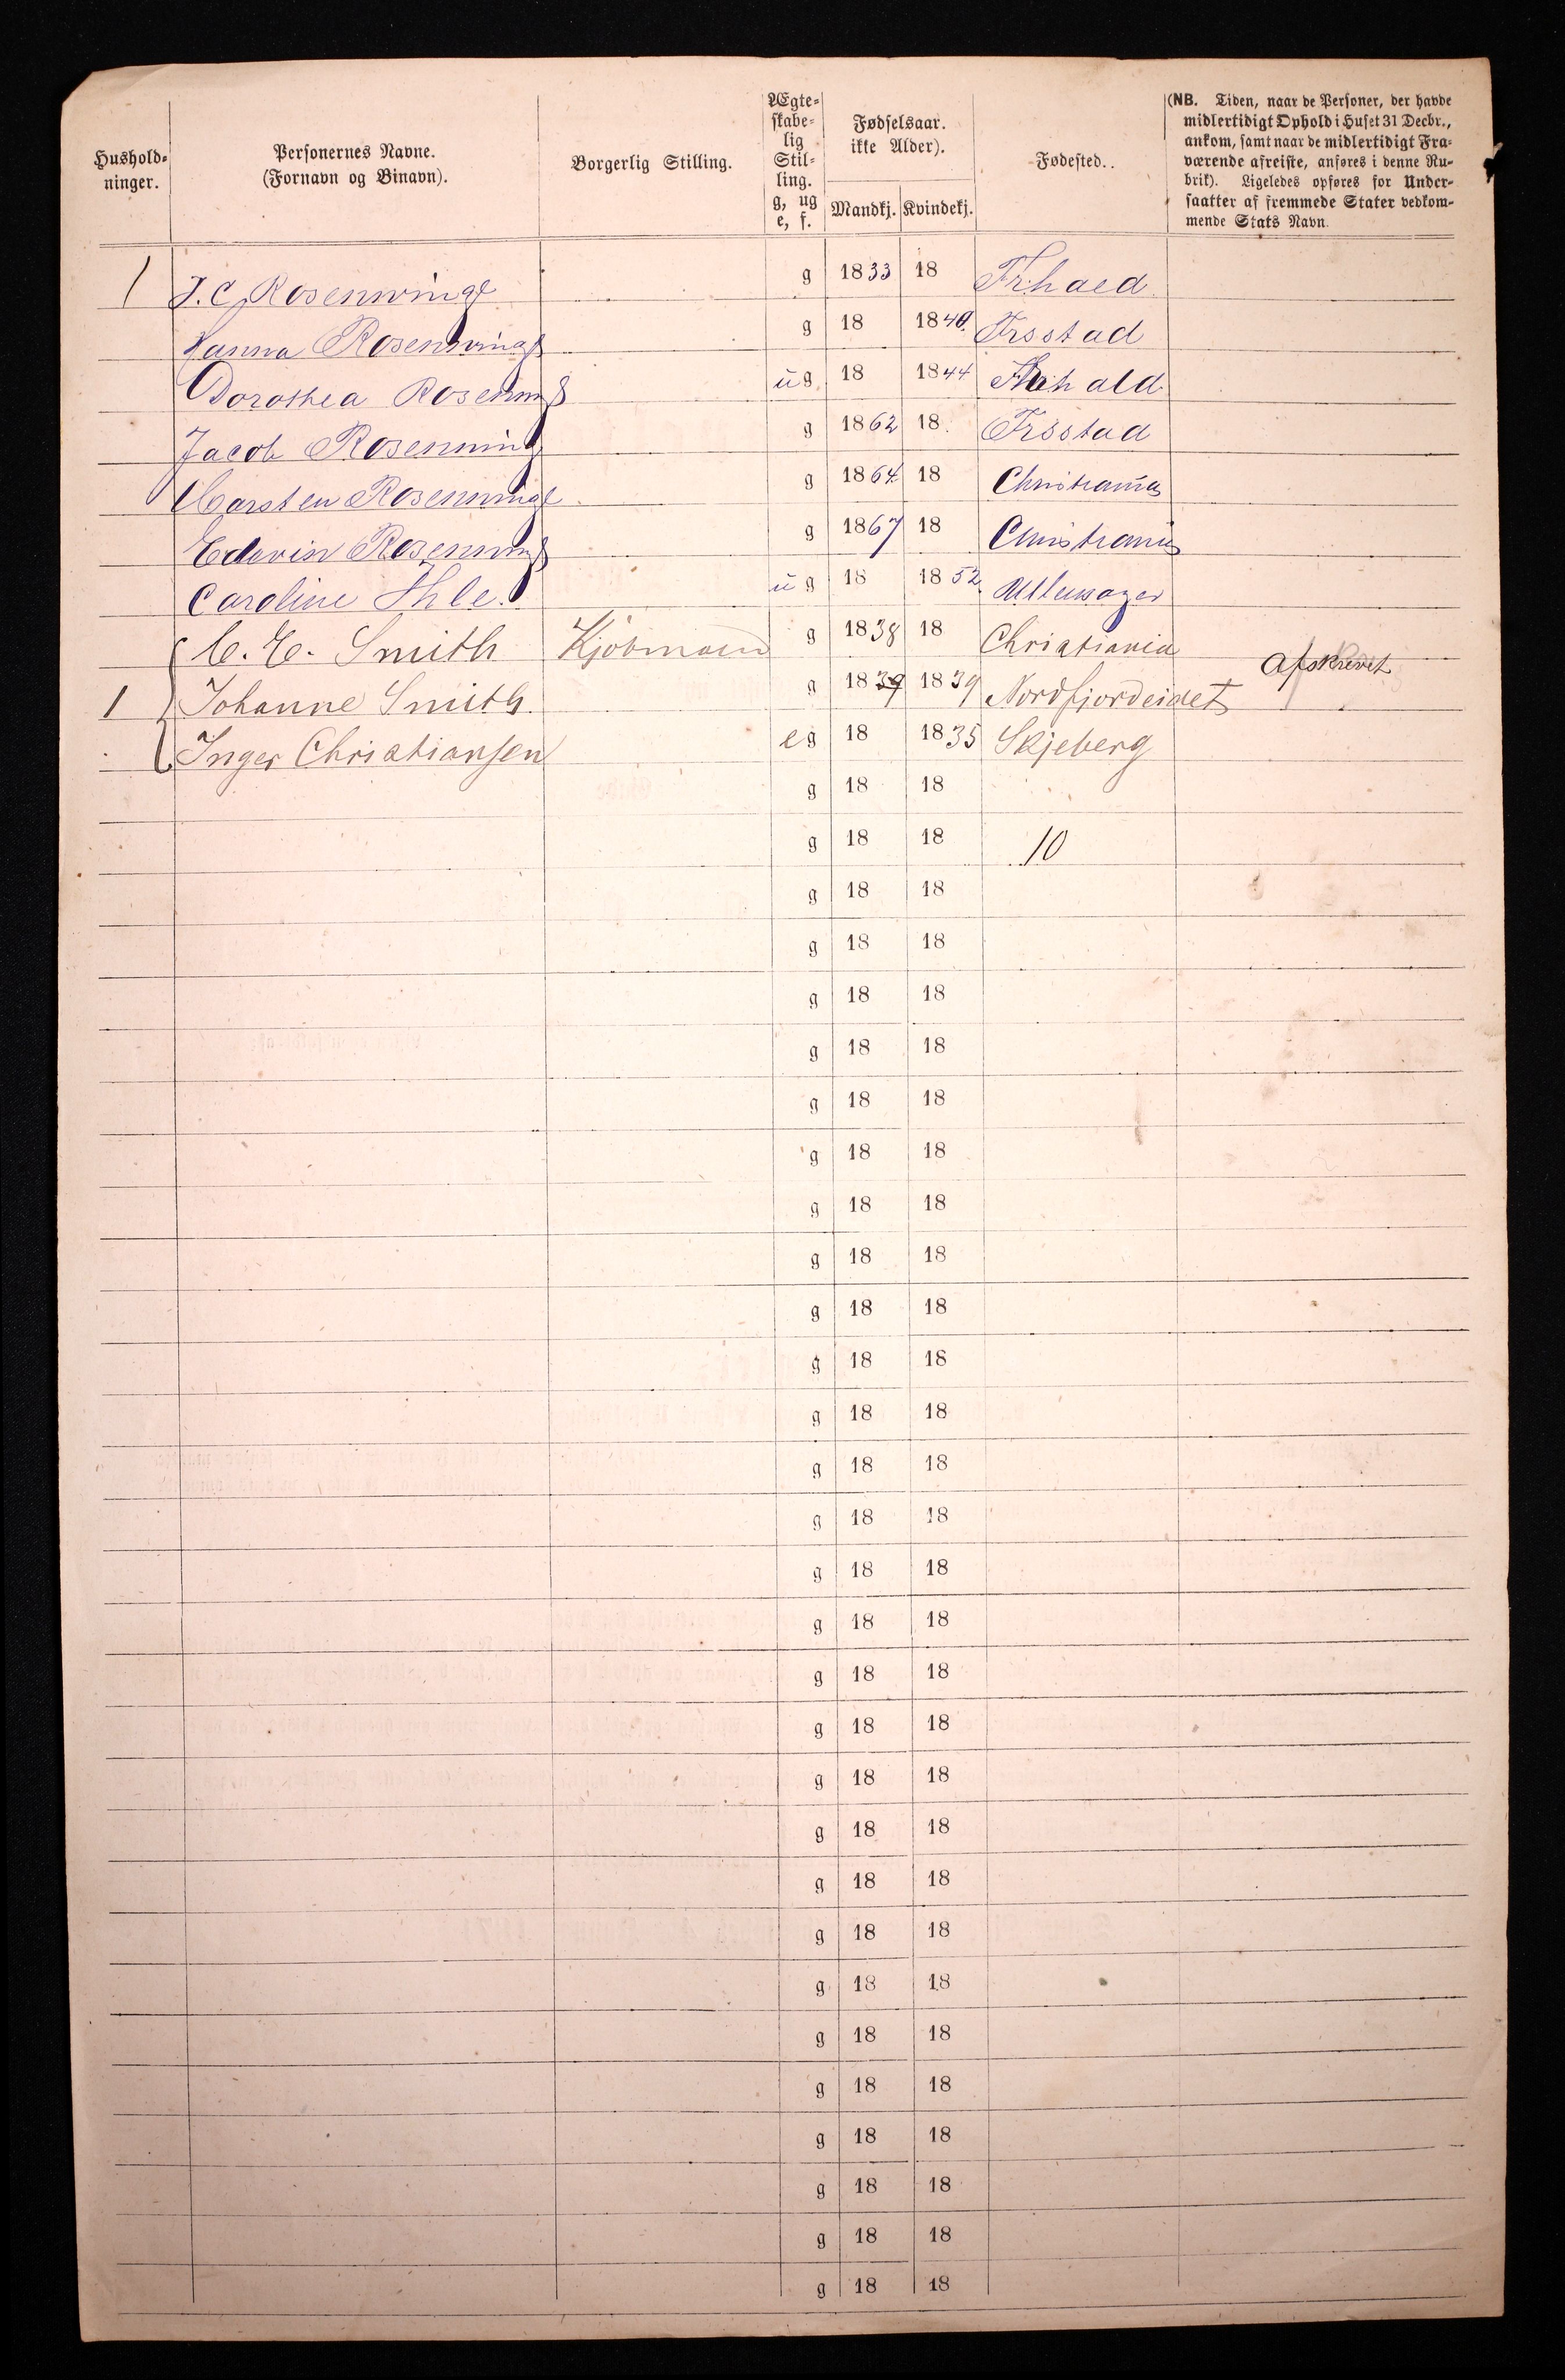 Hushold-
ninger.
Personernes Navne.
(Fornavn og Binavn).
Borgerlig Stilling.
Ægte-
skabe-
lig
Stil-
ling.
g, ug
e, f.
Fødselsaar.
ikke Alder).
Mandkj. Kvindekj.
Fødested.
(NB. Tiden, naar de Personer, der havde
midlertidigt Ophold i Huset 31 Decbr.,
ankom, samt naar de midlertidigt Fra-
værende afreiste, anføres i denne Ru-
brik). Ligeledes opføres for Under-
saatter af fremmede Stater vedkom-
mende Stats Navn.
1 J. C. Rosenwinge g 1833 18 Frhald
Hanna Rosenwinge g 18 1840. Frsstad
Dorothea Rosenwinge ug 18 1844 Frhald
Jacob Rosenwinge g 1862 18 Frsstad
Carsten Rosenwinge g 1864 18 Christiania
Edvin Rosenwinge g 1867 18 Christiania
Caroline Ihle. ug 18 1852 Ullensager
C. E. Smith Kjøbmand g 1838 18 Christiania
Afskrevet
1 Johanne Smith. g 1839 1839 Nordfjordeidet
Inger Christiansen eg 18 1835 Skjeberg
g 18 18
g 18 18 10
g 18 18
g 18 18
g 18 18
g 18 18
g 18 18
g 18 18
g 18 18
g 18 18
g 18 18
g 18 18
g 18 18
g 18 18
g 18 18
g 18 18
g 18 18
g 18 18
g 18 18
g 18 18
g 18 18
g 18 18
g 18 18
g 18 18
g 18 18
g 18 18
g 18 18
g 18 18
g 18 18
g 18 18